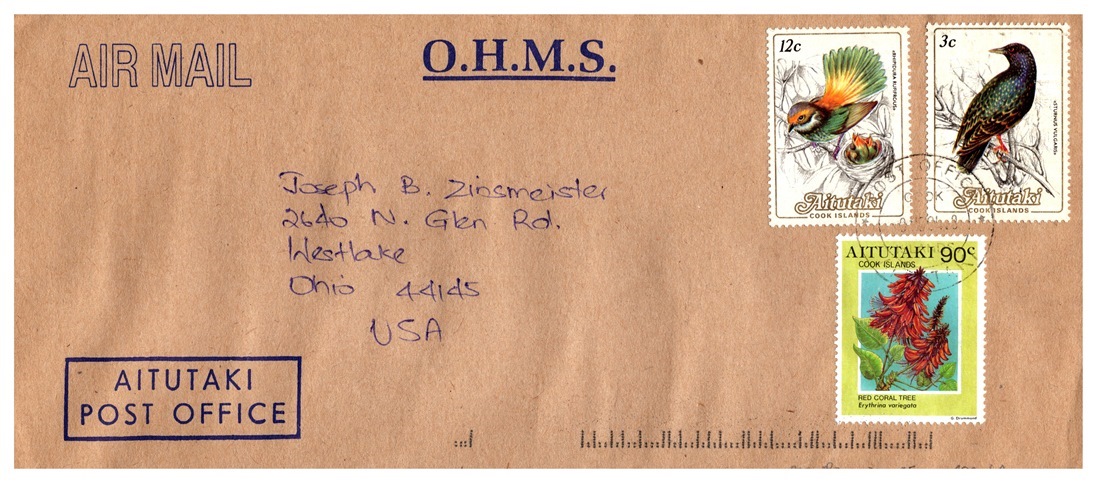 AIR MAIL
O.H.M.S.
12c
«RHIPIDURA RUFIFRONS»
Aitutaki
COOK ISLANDS
3c
«STURNUS VULGARIS»
Aitutaki
COOK ISLANDS
POST OFFICE
COOK
Joseph B. Zinsmeister
2640 N. Glen Rd.
Westlake
Ohio 44145
USA
AITUTAKI 90c
COOK ISLANDS
RED CORAL TREE
Erythrina variegata
G. Drummond
AITUTAKI
POST OFFICE